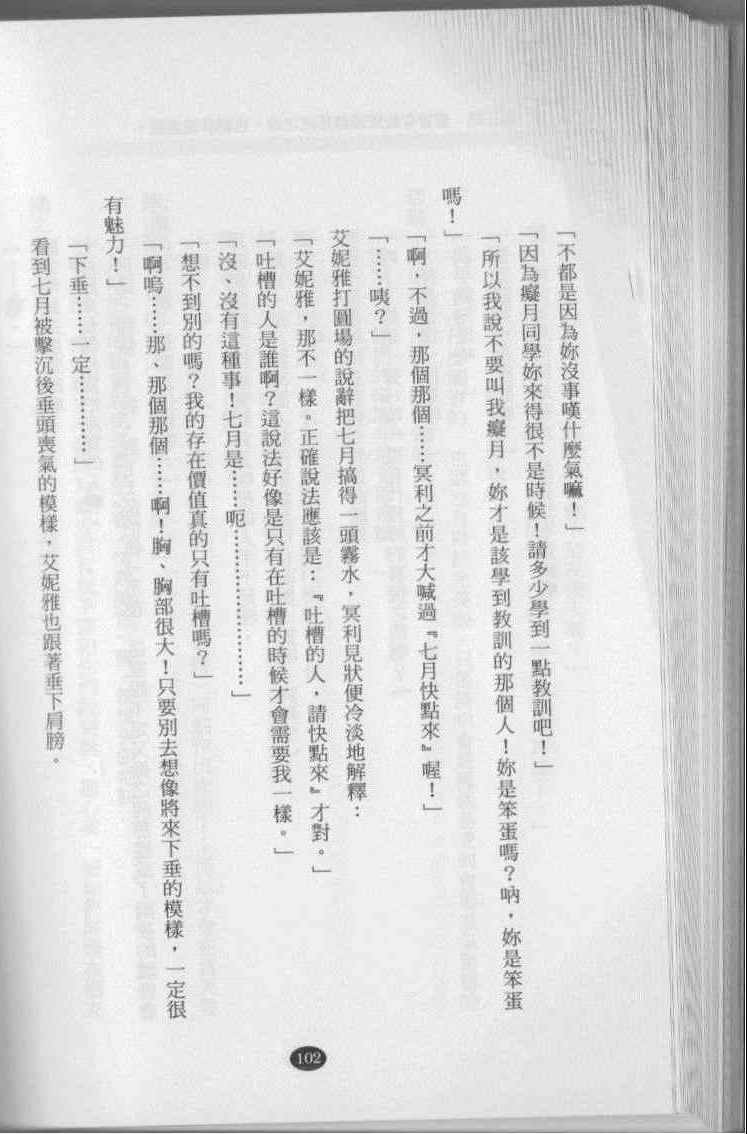 「不都是因為妳沒事嘆什麼氣嘛！」
「因為癡月同學妳來得很不是時候！請多少學到一點教訓吧！」
「所以我說不要叫我癡月，妳才是該學到教訓的那個人！妳是笨蛋嗎？吶，妳是笨蛋
嗎！」
「啊，不過，那個那個……冥利之前才大喊過『七月快點來』喔！」
「……咦？」
艾妮雅打圓場的說辭把七月搞得一頭霧水，冥利見狀便冷淡地解釋：
「艾妮雅，那不一樣。正確說法應該是：『吐槽的人，請快點來』才對。」
「吐槽的人是誰啊？這說法好像是只有在吐槽的時候才會需要我一樣。」
「沒、沒有這種事！七月是……呃…………………」
「想不到別的嗎？我的存在價值真的只有吐槽嗎？」
「啊嗚……那、那個那個……啊！胸、胸部很大！只要別去想像將來下垂的模樣，一定很
有魅力！」
「下垂……一定…………」
看到七月被擊沉後垂頭喪氣的模樣，艾妮雅也跟著垂下肩膀。
102